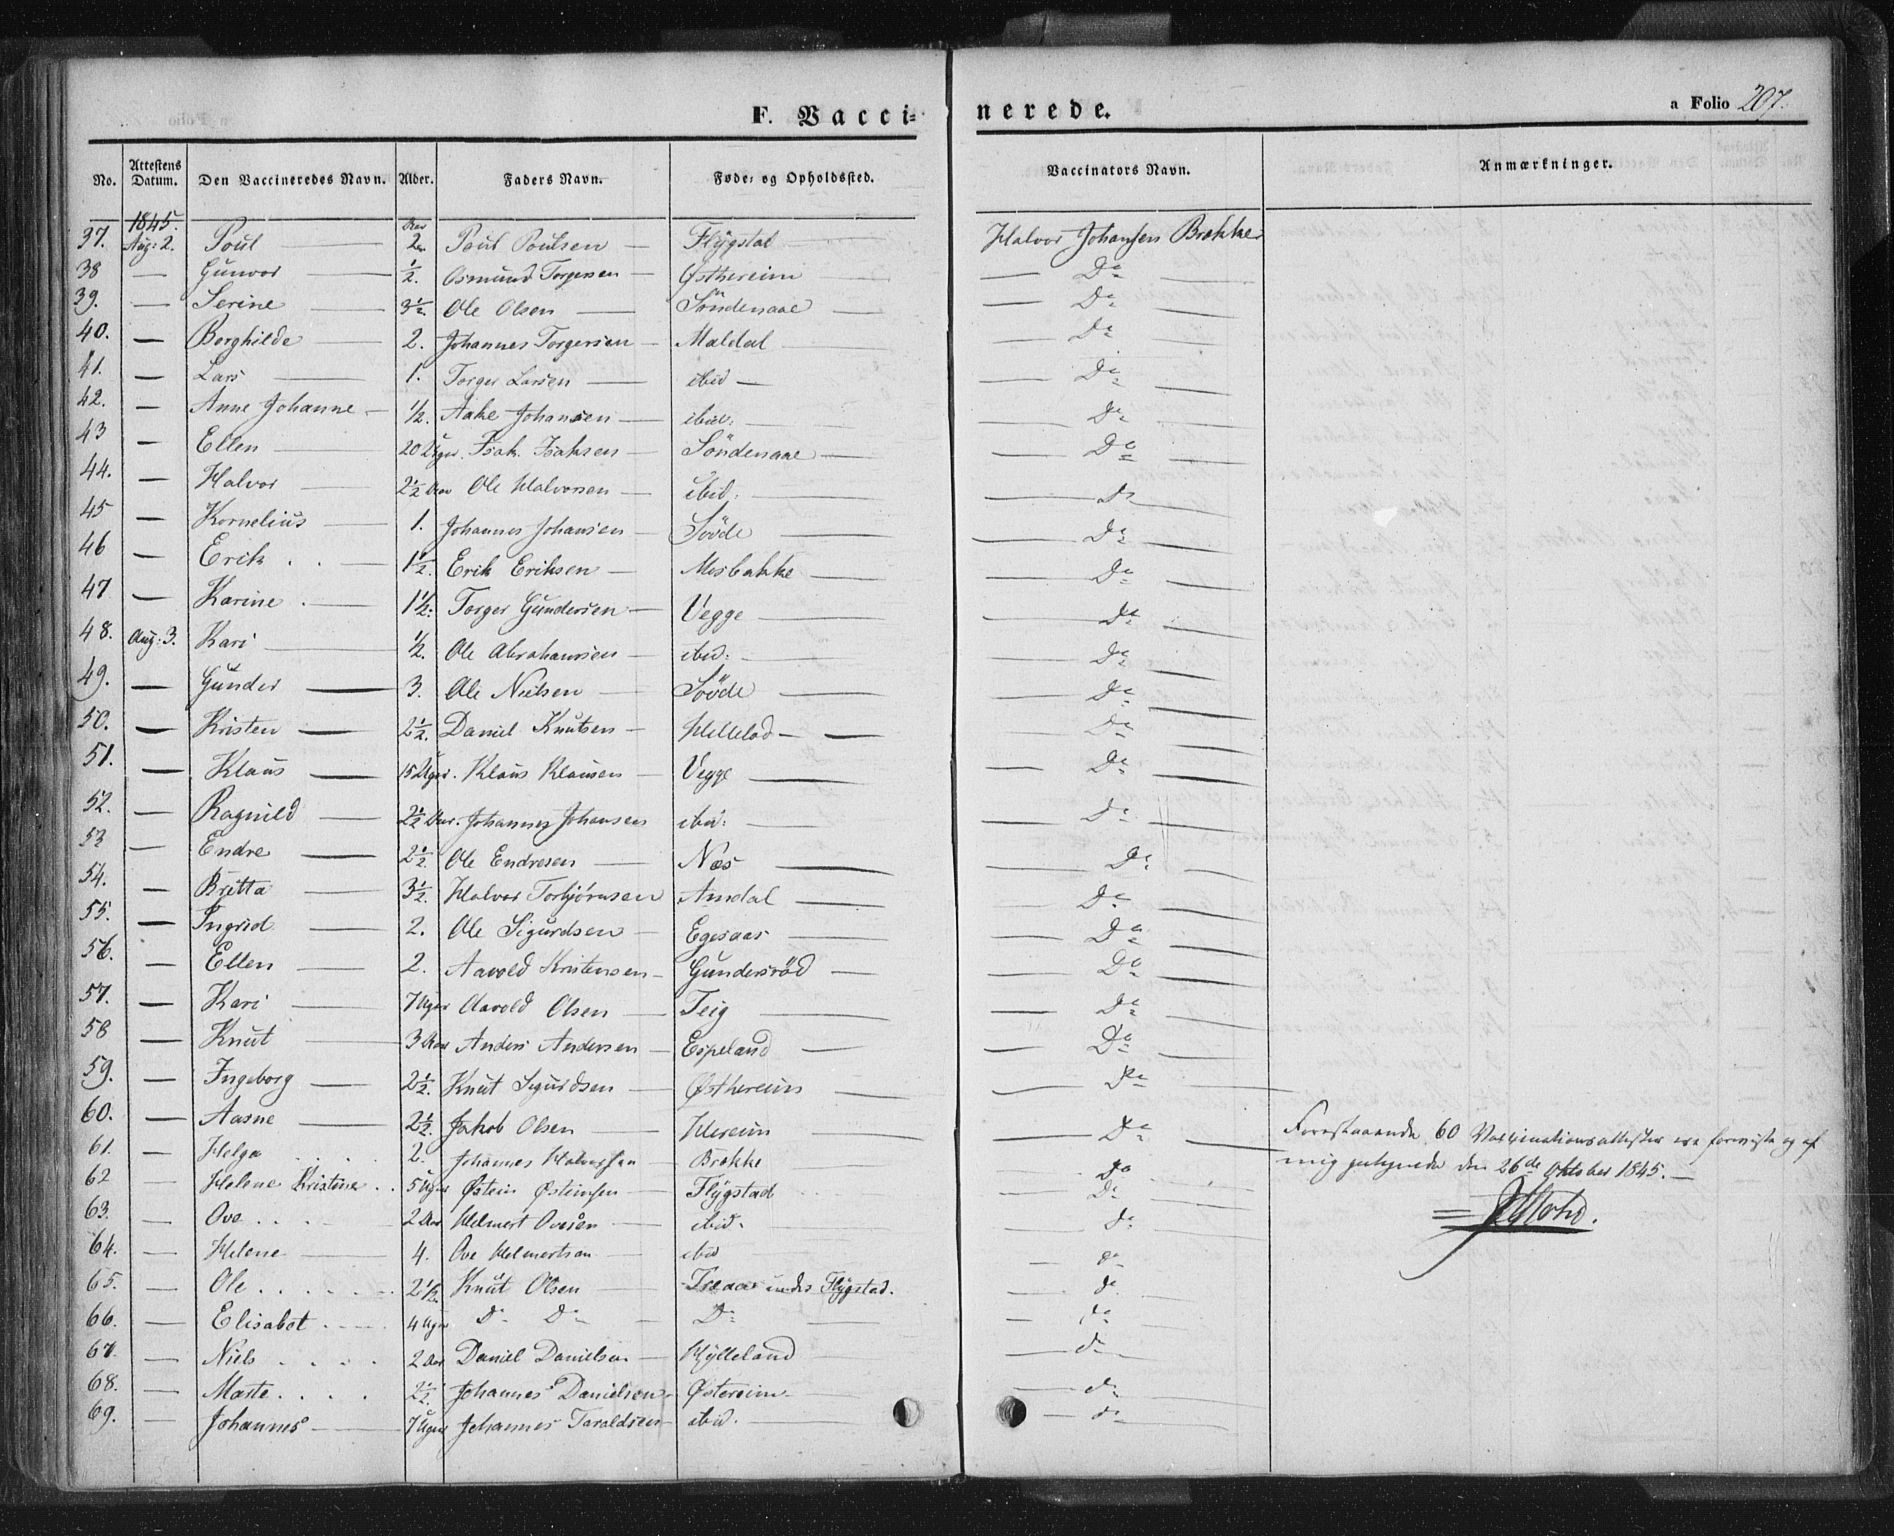 F. Vacci-
nerede.
a Folio 207.
No. Attestens Datum. Den Vaccineredes Navn. Alder. Faders Navn. Føde- og Opholdssted. Vaccinators Navn. Anmærkninger.
1845. Aar
37. Aug: 2. Poul — 2 Poul Poulsen — Flÿgstad Halvor Johansen Brekke
38 — Gunvor — ½. Osmund Torgersen — Østhereim — Do
39. — Serine — 3½. Ole Olsen — Söndenaae — — Do
40. — Borghilde — 2. Johannes Torgersen — Maldal — — Do
41. — Lars — 1. Torger Larsen — ibid — — Do
42. — Anne Johanne — ½. Aake Johansen — ibid: — — Do
43 — Ellen — 20 Uger. Isak Isaksen — Söndenaae — — Do
44. — Halvor — 2½ Aar Ole Halvorsen — ibid: — — Do
45 — Kornelius — 1. Johannes Johansen — Søvde — — Do
46 — Erik . . — 1½. Erik Eriksen — Mosbakke — — Do
47 — Karine . — 1½. Torger Gundersen — Vegge — — Do
48. Aug: 3. Kari — ½. Ole Abrahamsen — ibid: — — Do
49. — Gunder — 3. Ole Nielsen — Søvde — — Do
50. — Kristen — 2½. Daniel Knutsen — — — Do
51. — Klaus — 15 Uger. Klaus Klausen — Vegge — — Do
52. — Ragnild — 2½ Aar. Johannes Johansen ibid: — — Do
53 — Endre — 2½. Ole Endresen — Næs — — Do
54. — Britta — 3½. Halvor Torbjørnsen Amdal — — Do
55. — Ingrid — 2. Ole Sigurdsen — Egesaas — — Do
56. — Ellen — 2. Aavold Kristensen — Gundersröd — — Do
57. — Kari — 7 Uger Aavold Olsen — Teig — — Do
58 — Knut — 3 Aar Anders Andersen — Espeland — — Do
59. — Ingeborg — 2½. Knut Sigurdsen — Østhereim — — Do
60. — Aasne — 2½. Jakob Olsen — Hereim — — Do Forestaaende 60 Vaxinationsattester ere foreviste og af
61. — Helga . . . . 2. Johannes Halvorsen — Brekke Do mig paategnede den 26de Oktober 1845. —
62 — Helene Kristine . . 5 Uger Østein Østeinsen — Flÿgstad — Do
63. — Ove . . . 2 Aar Helmert Ovesen — ibid. — — Do
64. — Helene — 4. Ove Helmertsen — ibid — do
65. — Ole . . . . . . 2½ Knut Olsen — under Flÿgstad. — do
66. — Elisabet . . . . 4 Uger Do Do — Do — — do
67. — Niels . . . . 2 Aar Daniel Danielsen — Hÿlleland — — do
68. — Marte . . . . 2½. Johannes Danielsen — Østereim — — do
69. — Johannes — 7 Uger Johannes Taraldsen — ibid. — — do